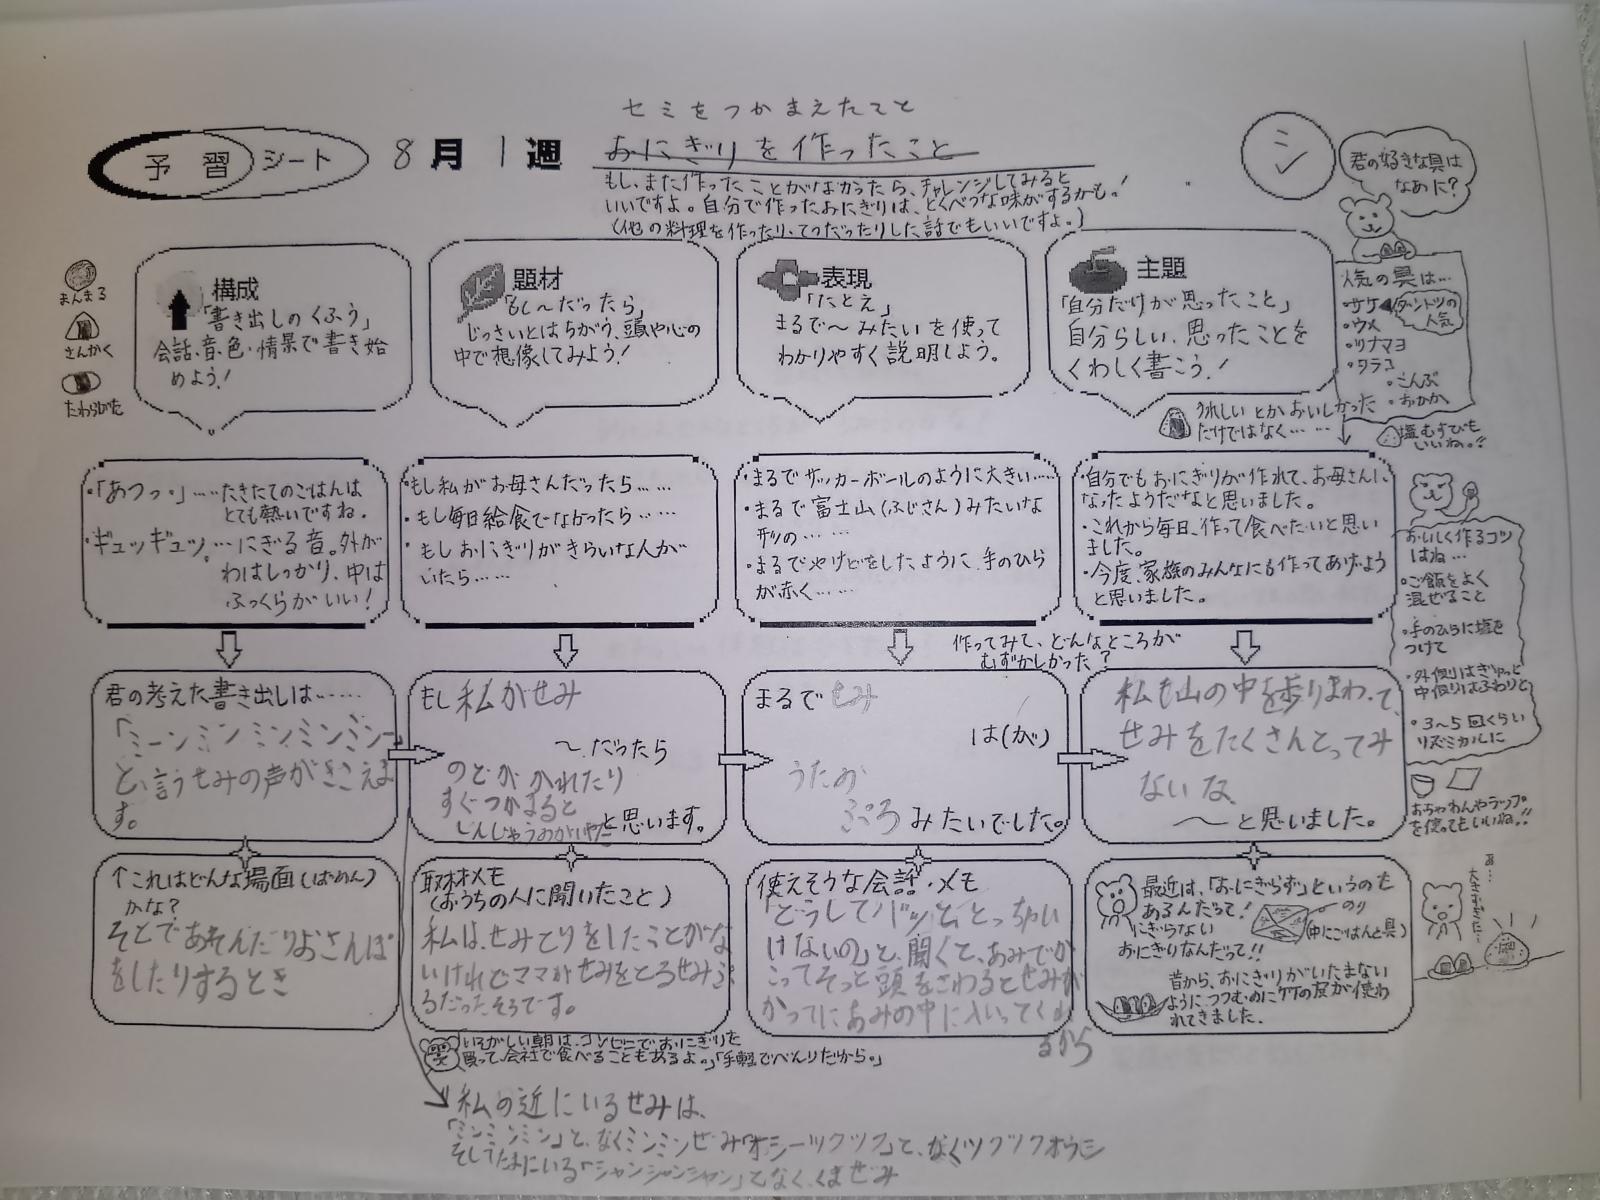 セミをつかまえたてと
予習シート
8月1週
おにぎりを作ったこと
シ
もし、まだ作ったことがなかったら、チャレンジしてみると
いいですよ。自分で作ったおにぎりは、とくべつな味がするかも!
(他の料理を作ったり、てつだったりした話でもいいですよ。)
君の好きな具は
なあに?
まんまる
さんかく
たわらがた
構成
「書き出しのくふう」
会話・音・色・情景で書き始
めよう!
題材
「もし〜だったら」
じっさいとはちがう、頭や心の
中で想像してみよう!
表現
「たとえ」
まるで〜みたいを使って
わかりやすく説明しよう。
主題
「自分だけが思ったこと」
自分らしい、思ったことを
くわしく書こう!
うれしいとかおいしかった
だけではなく……
人気の具は…
・サケ
ダントツの
人気
・ウメ
・ツナマヨ
・タラコ
・こんぶ
・おかか
塩むすびも
いいね。!!
・「あつっ。」……たきたてのごはんは
とても熱いですね。
・ギュッギュッ。…にぎる音。外が
わはしっかり、中は
ふっくらがいい!
・もし私がお母さんだったら……
・もし毎日給食でなかったら……
・もしおにぎりがきらいな人が
いたら……
・まるでサッカーボールのように大きい……
・まるで富士山(ふじさん)みたいな
形の……
・まるでやけどをしたように、手のひら
が赤く……
・自分でもおにぎりが作れて、お母さんに
なったようだなと思いました。
・これから毎日、作って食べたいと思い
ました。
・今度、家族のみんなにも作ってあげよう
と思いました。
おいしく作るコツ
はね…
・ご飯をよく
混ぜること
・手のひらに塩を
つけて
・外側はぎゅっと
中側はふわりと
・3〜5回くらい
リズミカルに
おちゃわんやラップ
を使ってもいいね。!!
作ってみて、どんなところが
むずかしかった?
君の考えた書き出しは……
「ミーンミンミンミンミンー
と、言うせみの声がきこえま
す。
もし私がせみ
〜だったら
のどがかれたり
すぐつかまると
と思います。
まるでせみ
は(が)
うたの
ぷろ
みたいでした。
私も山の中を歩りまわって、
せみをたくさんとってみ
ないな、
〜と思いました。
↑これはどんな場面(ばめん)
かな?
そとであそんだりおさんぽ
をしたりするとき
取材メモ
(おうちの人に聞いたこと)
私は、せみとりをしたことがな
いけれどママがせみをとるせみぷ
ろだったそうです。
使えそうな会話・メモ
「どうしてバッととっちゃい
けないの」と、聞くと、あみでか
こってそっと頭をさわるとせみが
かってにあみの中に入いってくれ
るから
最近は、「おにぎらず」というのも
あるんだって!
にぎらない
おにぎりなんだって!!
のり
(中にごはんと具)
昔から、おにぎりがいたまない
ように、つつむのにタケの皮が使わ
れてきました。
あ…
大きすぎた…
「いそがしい朝は、コンビニでおにぎりを
買って、会社で食べることもあるよ。」「手軽でべんりだから。」
私の近にいるせみは、
「ミンミンミン」と、なくミンミンぜみ「オシーツクツク」と、なくツクツクオウシ
そしてたまにいる「シャンシャンシャン」となく、くまぜみ